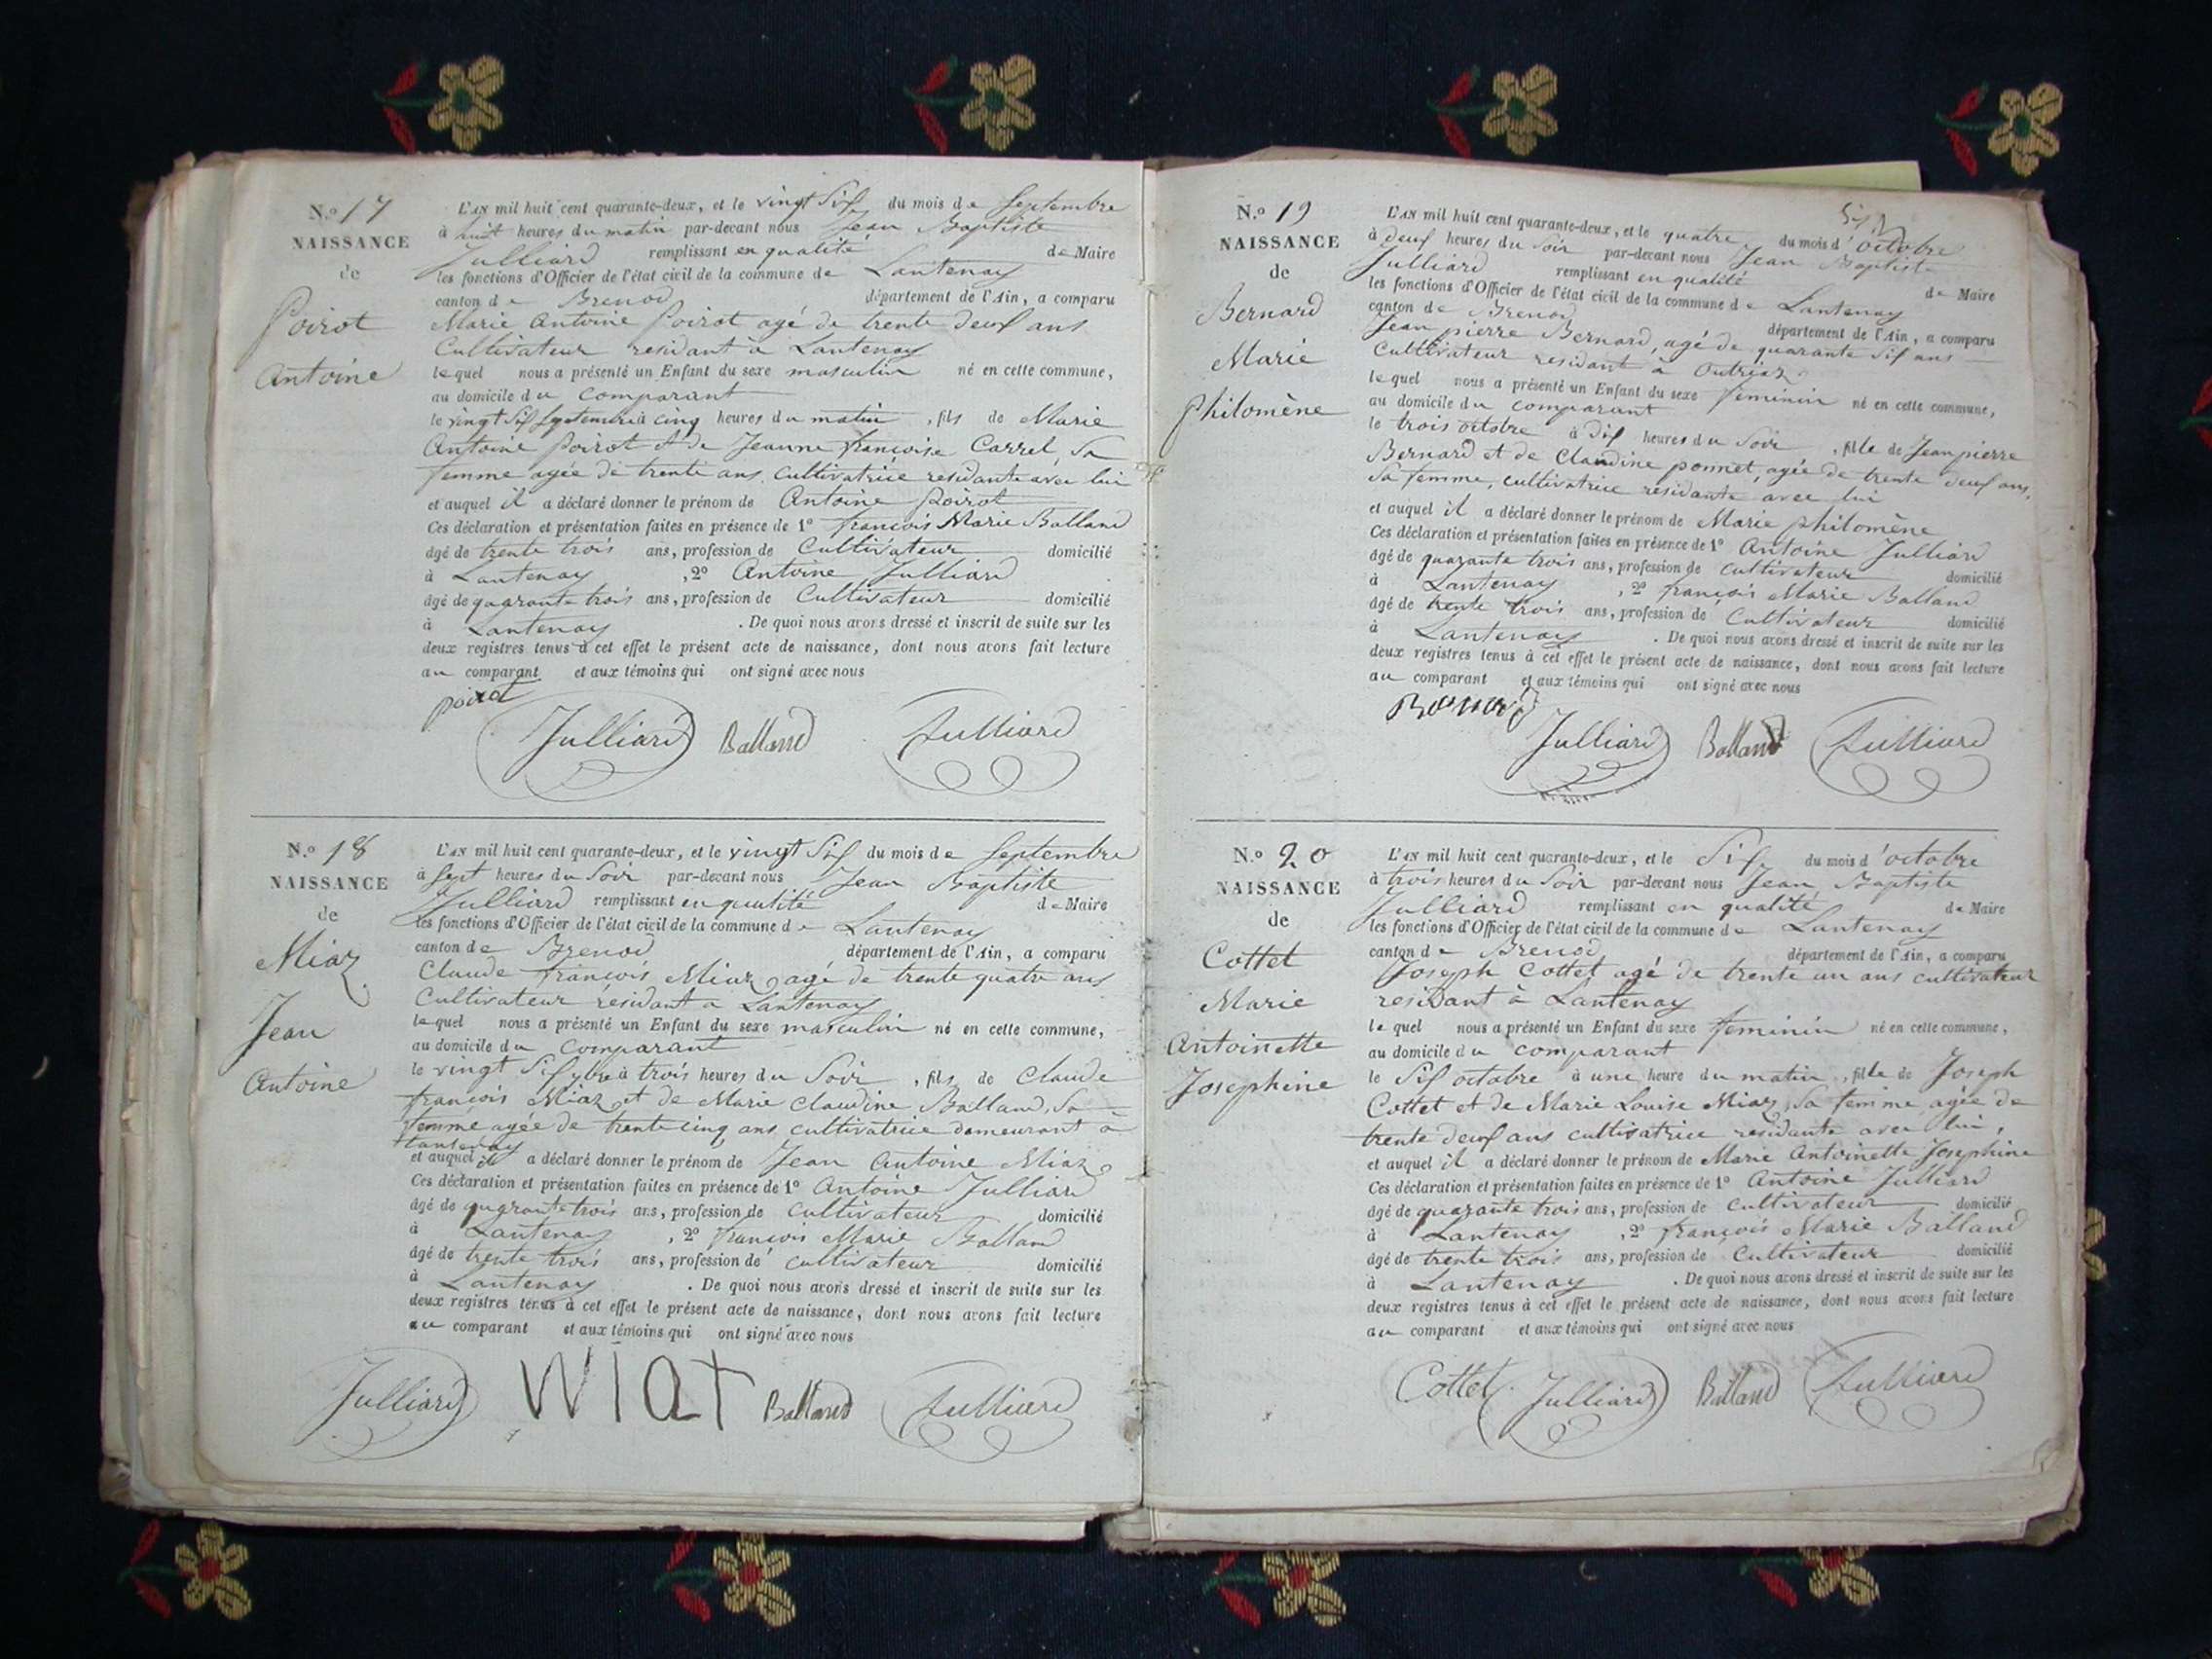 N.º 17
NAISSANCE
de
Poirot
Antoine
L'AN mil huit cent quarante-deux, et le vingt Six du mois de Septembre
à huit heures du matin par-devant nous Jean Baptiste
Julliard remplissant en qualité de Maire
les fonctions d'Officier de l'état civil de la commune de Lantenay
canton de Brenod département de l'Ain, a comparu
Marie Antoine Poirot agé de trente deux ans
Cultivateur residant à Lantenay
lequel nous a présenté un Enfant du sexe masculin né en cette commune,
au domicile du comparant
le vingt Six Septembre à cinq heures du matin, fils de Marie
Antoine Poirot et de Jeanne françoise Carrel, Sa
femme agée de trente ans, cultivatrice residante avec lui
et auquel il a déclaré donner le prénom de Antoine Poirot
Ces déclaration et présentation faites en présence de 1º françois Marie Balland
âgé de trente trois ans, profession de Cultivateur domicilié
à Lantenay, 2º Antoine Julliard
âgé de quarante trois ans, profession de Cultivateur domicilié
à Lantenay. De quoi nous avons dressé et inscrit de suite sur les
deux registres tenus à cet effet le présent acte de naissance, dont nous avons fait lecture
au comparant et aux témoins qui ont signé avec nous
poirot
Julliard Balland Julliard
N.º 18
NAISSANCE
de
Miaz
Jean
Antoine
L'AN mil huit cent quarante-deux, et le vingt Six du mois de Septembre
à Sept heures du Soir par-devant nous Jean Baptiste
Julliard remplissant en qualité de Maire
les fonctions d'Officier de l'état civil de la commune de Lantenay
canton de Brenod département de l'Ain, a comparu
Claude françois Miaz agé de trente quatre ans
Cultivateur résidant a Lantenay
lequel nous a présenté un Enfant du sexe masculin né en cette commune,
au domicile du comparant
le vingt Six 7bre à trois heures du Soir, fils de Claude
françois Miaz et de Marie Claudine Balland, Sa
femme agée de trente cinq ans cultivatrice demeurant à
Lantenay
et auquel il a déclaré donner le prénom de Jean Antoine Miaz
Ces déclaration et présentation faites en présence de 1º Antoine Julliard
âgé de quarante trois ans, profession de Cultivateur domicilié
à Lantenay, 2º françois Marie Balland
âgé de trente trois ans, profession de cultivateur domicilié
à Lantenay. De quoi nous avons dressé et inscrit de suite sur les
deux registres tenus à cet effet le présent acte de naissance, dont nous avons fait lecture
au comparant et aux témoins qui ont signé avec nous
Julliard Balland Julliard
N.º 19
NAISSANCE
de
Bernard
Marie
philomène
L'AN mil huit cent quarante-deux, et le quatre du mois d'octobre
à deux heures du Soir par-devant nous Jean Baptiste
Julliard remplissant en qualité de Maire
les fonctions d'Officier de l'état civil de la commune de Lantenay
canton de Brenod département de l'Ain, a comparu
Jean pierre Bernard, agé de quarante Six ans
Cultivateur residant à Outriaz
lequel nous a présenté un Enfant du sexe feminin né en cette commune,
au domicile du comparant
le trois octobre à dix heures du Soir, fille de Jean pierre
Bernard et de Claudine ponnet, agée de trente deux ans,
Sa femme, cultivatrice residante avec lui
et auquel il a déclaré donner le prénom de Marie philomène
Ces déclaration et présentation faites en présence de 1º Antoine Julliard
âgé de quarante trois ans, profession de cultivateur domicilié
à Lantenay, 2º françois Marie Balland
âgé de trente trois ans, profession de Cultivateur domicilié
à Lantenay. De quoi nous avons dressé et inscrit de suite sur les
deux registres tenus à cet effet le présent acte de naissance, dont nous avons fait lecture
au comparant et aux témoins qui ont signé avec nous
Bernard
Julliard Balland Julliard
N.º 20
NAISSANCE
de
Cottet
Marie
Antoinette
Josephine
L'AN mil huit cent quarante-deux, et le Six du mois d'octobre
à trois heures du Soir par-devant nous Jean Baptiste
Julliard remplissant en qualité de Maire
les fonctions d'Officier de l'état civil de la commune de Lantenay
canton de Brenod département de l'Ain, a comparu
Joseph Cottet agé de trente un ans cultivateur
residant à Lantenay
lequel nous a présenté un Enfant du sexe feminin né en cette commune,
au domicile du comparant
le Six octobre à une heure du matin, fille de Joseph
Cottet et de Marie Louise Miaz, Sa femme agée de
trente deux ans cultivatrice residante avec lui,
et auquel il a déclaré donner le prénom de Marie Antoinette Josephine
Ces déclaration et présentation faites en présence de 1º Antoine Julliard
âgé de quarante trois ans, profession de cultivateur domicilié
à Lantenay, 2º françois Marie Balland
âgé de trente trois ans, profession de Cultivateur domicilié
à Lantenay. De quoi nous avons dressé et inscrit de suite sur les
deux registres tenus à cet effet le présent acte de naissance, dont nous avons fait lecture
au comparant et aux témoins qui ont signé avec nous
Cottet Julliard Balland Julliard